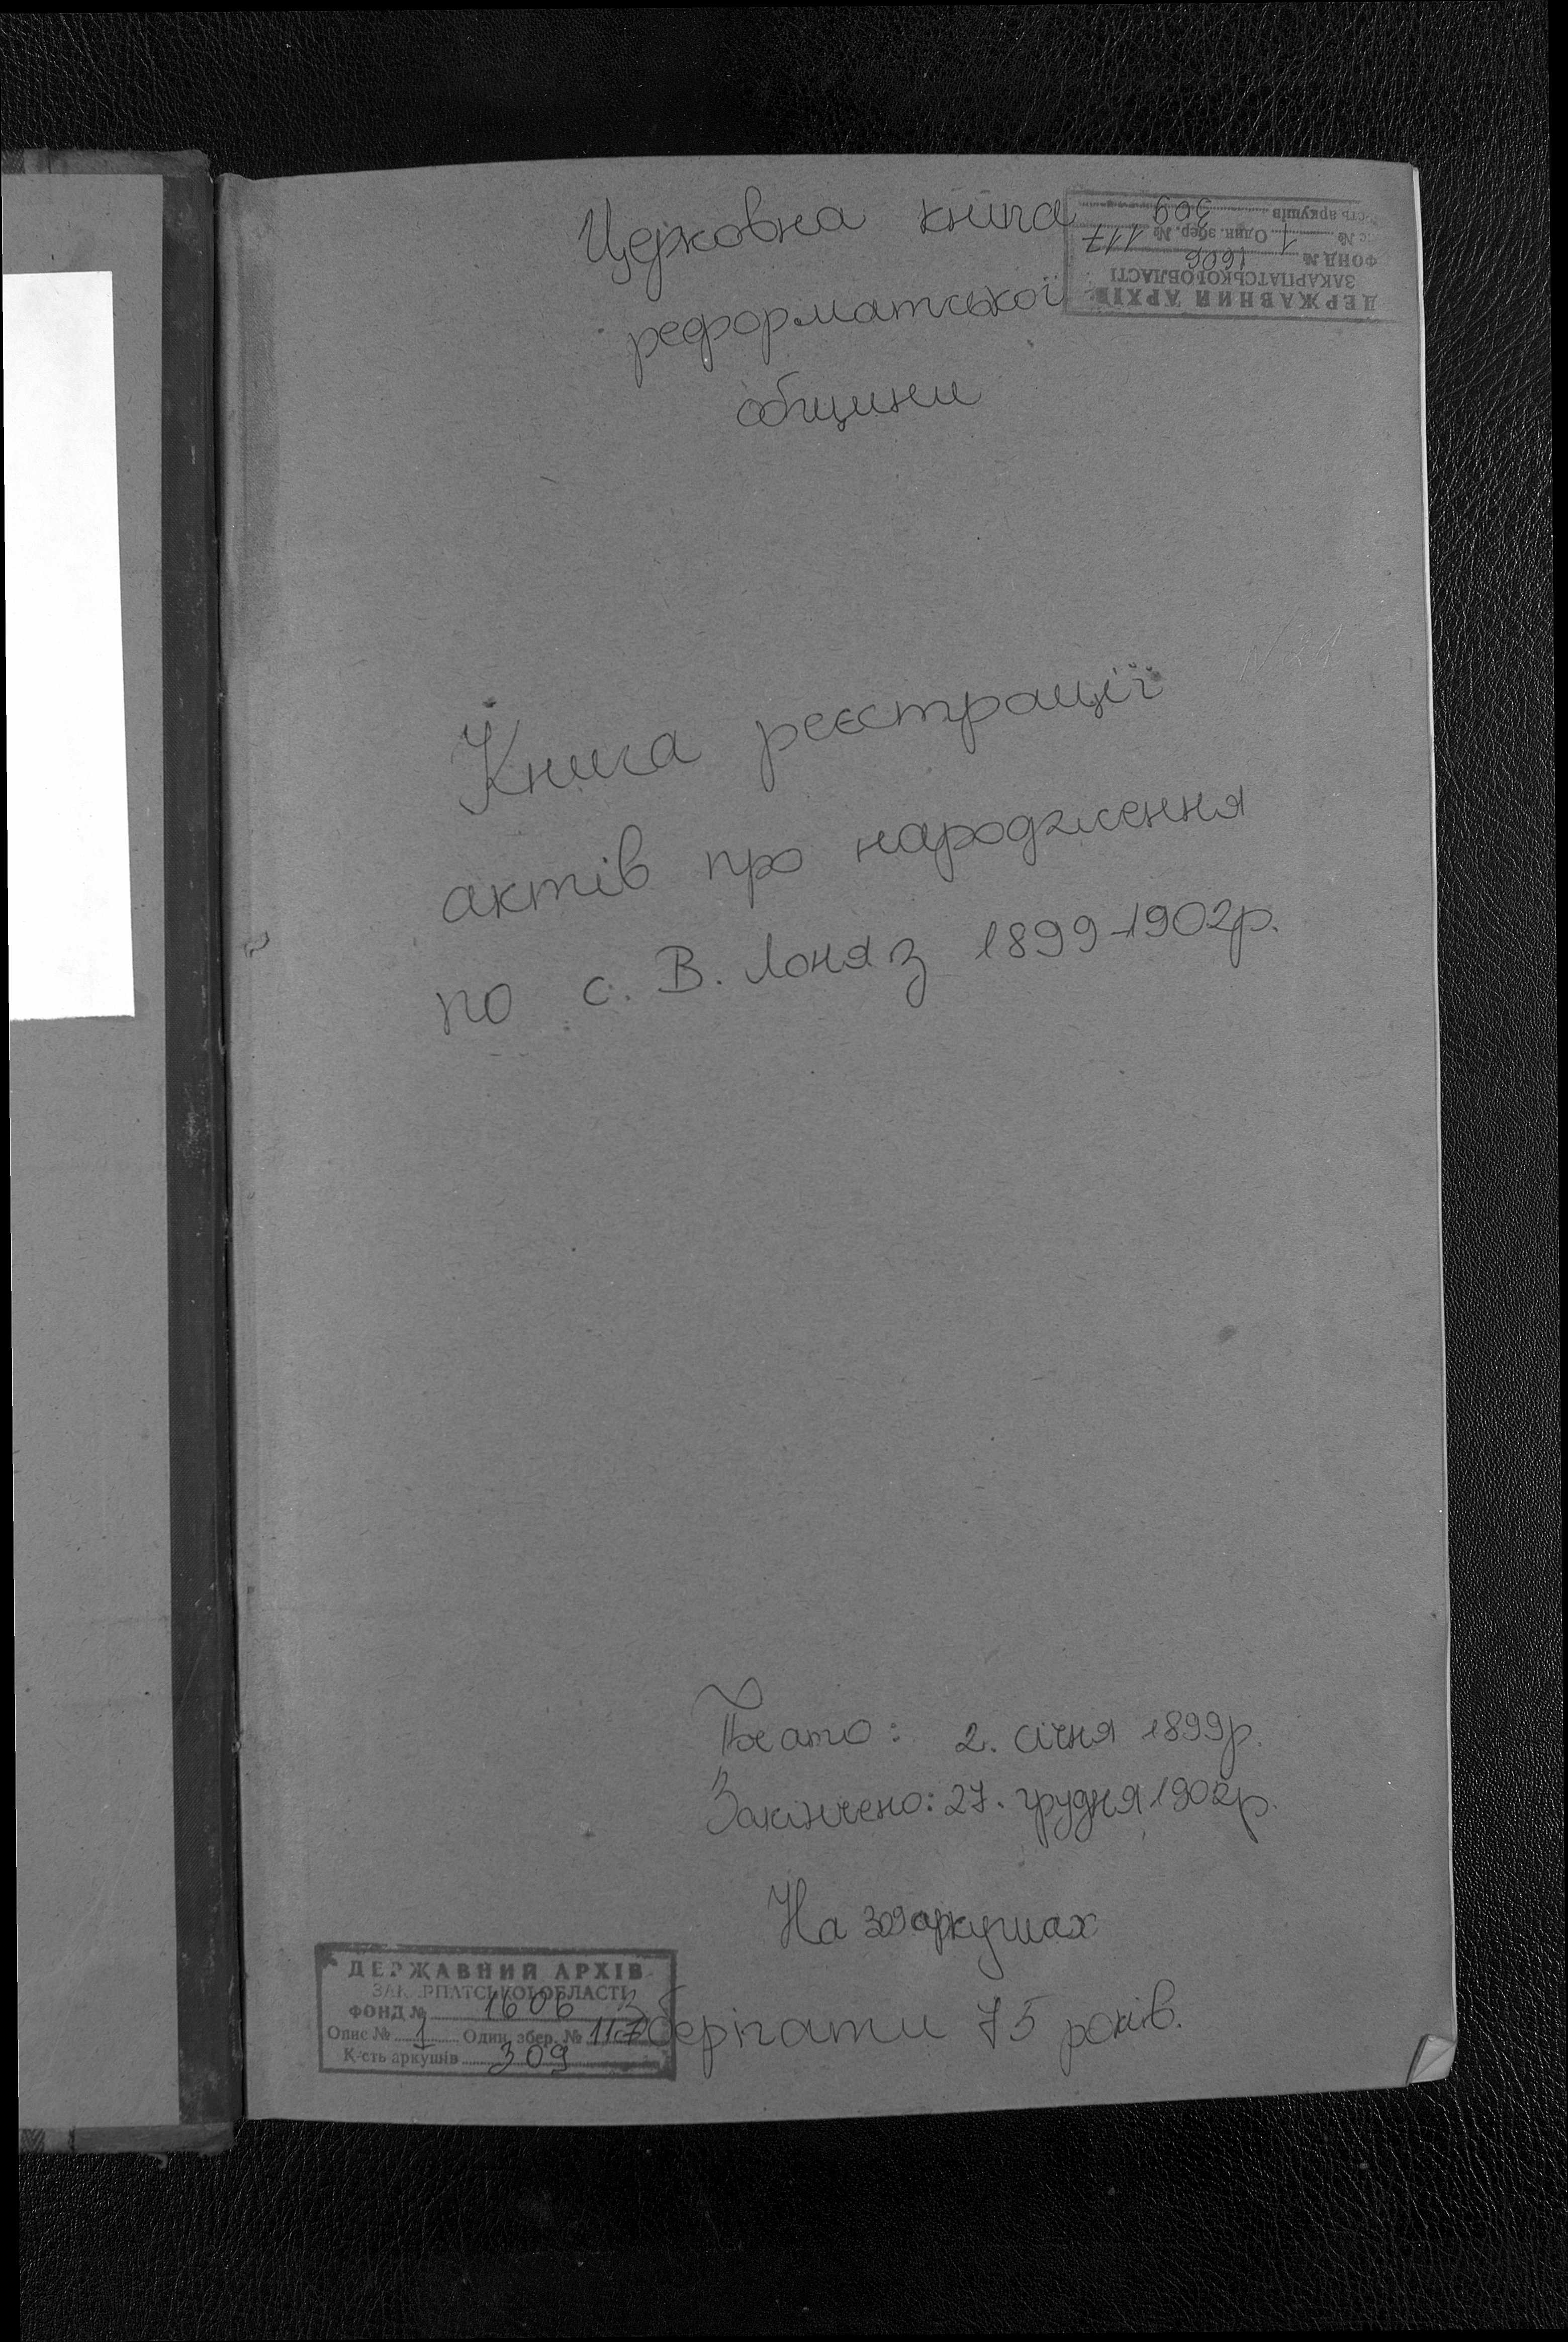 Церковна книга
реформатської
общини
ДЕРЖАВНИЙ АРХІВ
ЗАКАРПАТСЬКОЇ ОБЛАСТІ
ФОНД № 1606
№ 1 Один. збер. № 117
сть аркушів 309
Книга реєстрації
актів про народження
по с. В. Лоняз 1899-1902р.
2. січня 1899р.
Закінчено: 27. грудня 1902р.
На 309 аркушах
Зберігати 75 років.
ДЕРЖАВНИЙ АРХІВ
ЗАКАРПАТСЬКОЇ ОБЛАСТІ
ФОНД № 1606
Опис № 1 Один. збер. № 117
К-сть аркушів 309